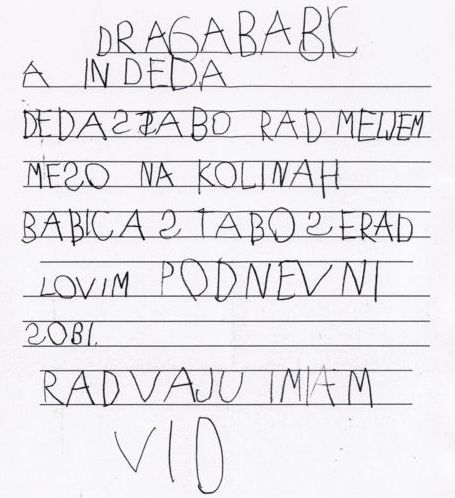 DRAGABABIC
A IN DEDA
DEDA STABO RAD MELJEM
MESO NA KOLINAH
BABICA S TABO SE RAD
LOVIM PODNEVNI
SOBI.
RAD VAJU IMAM
VID